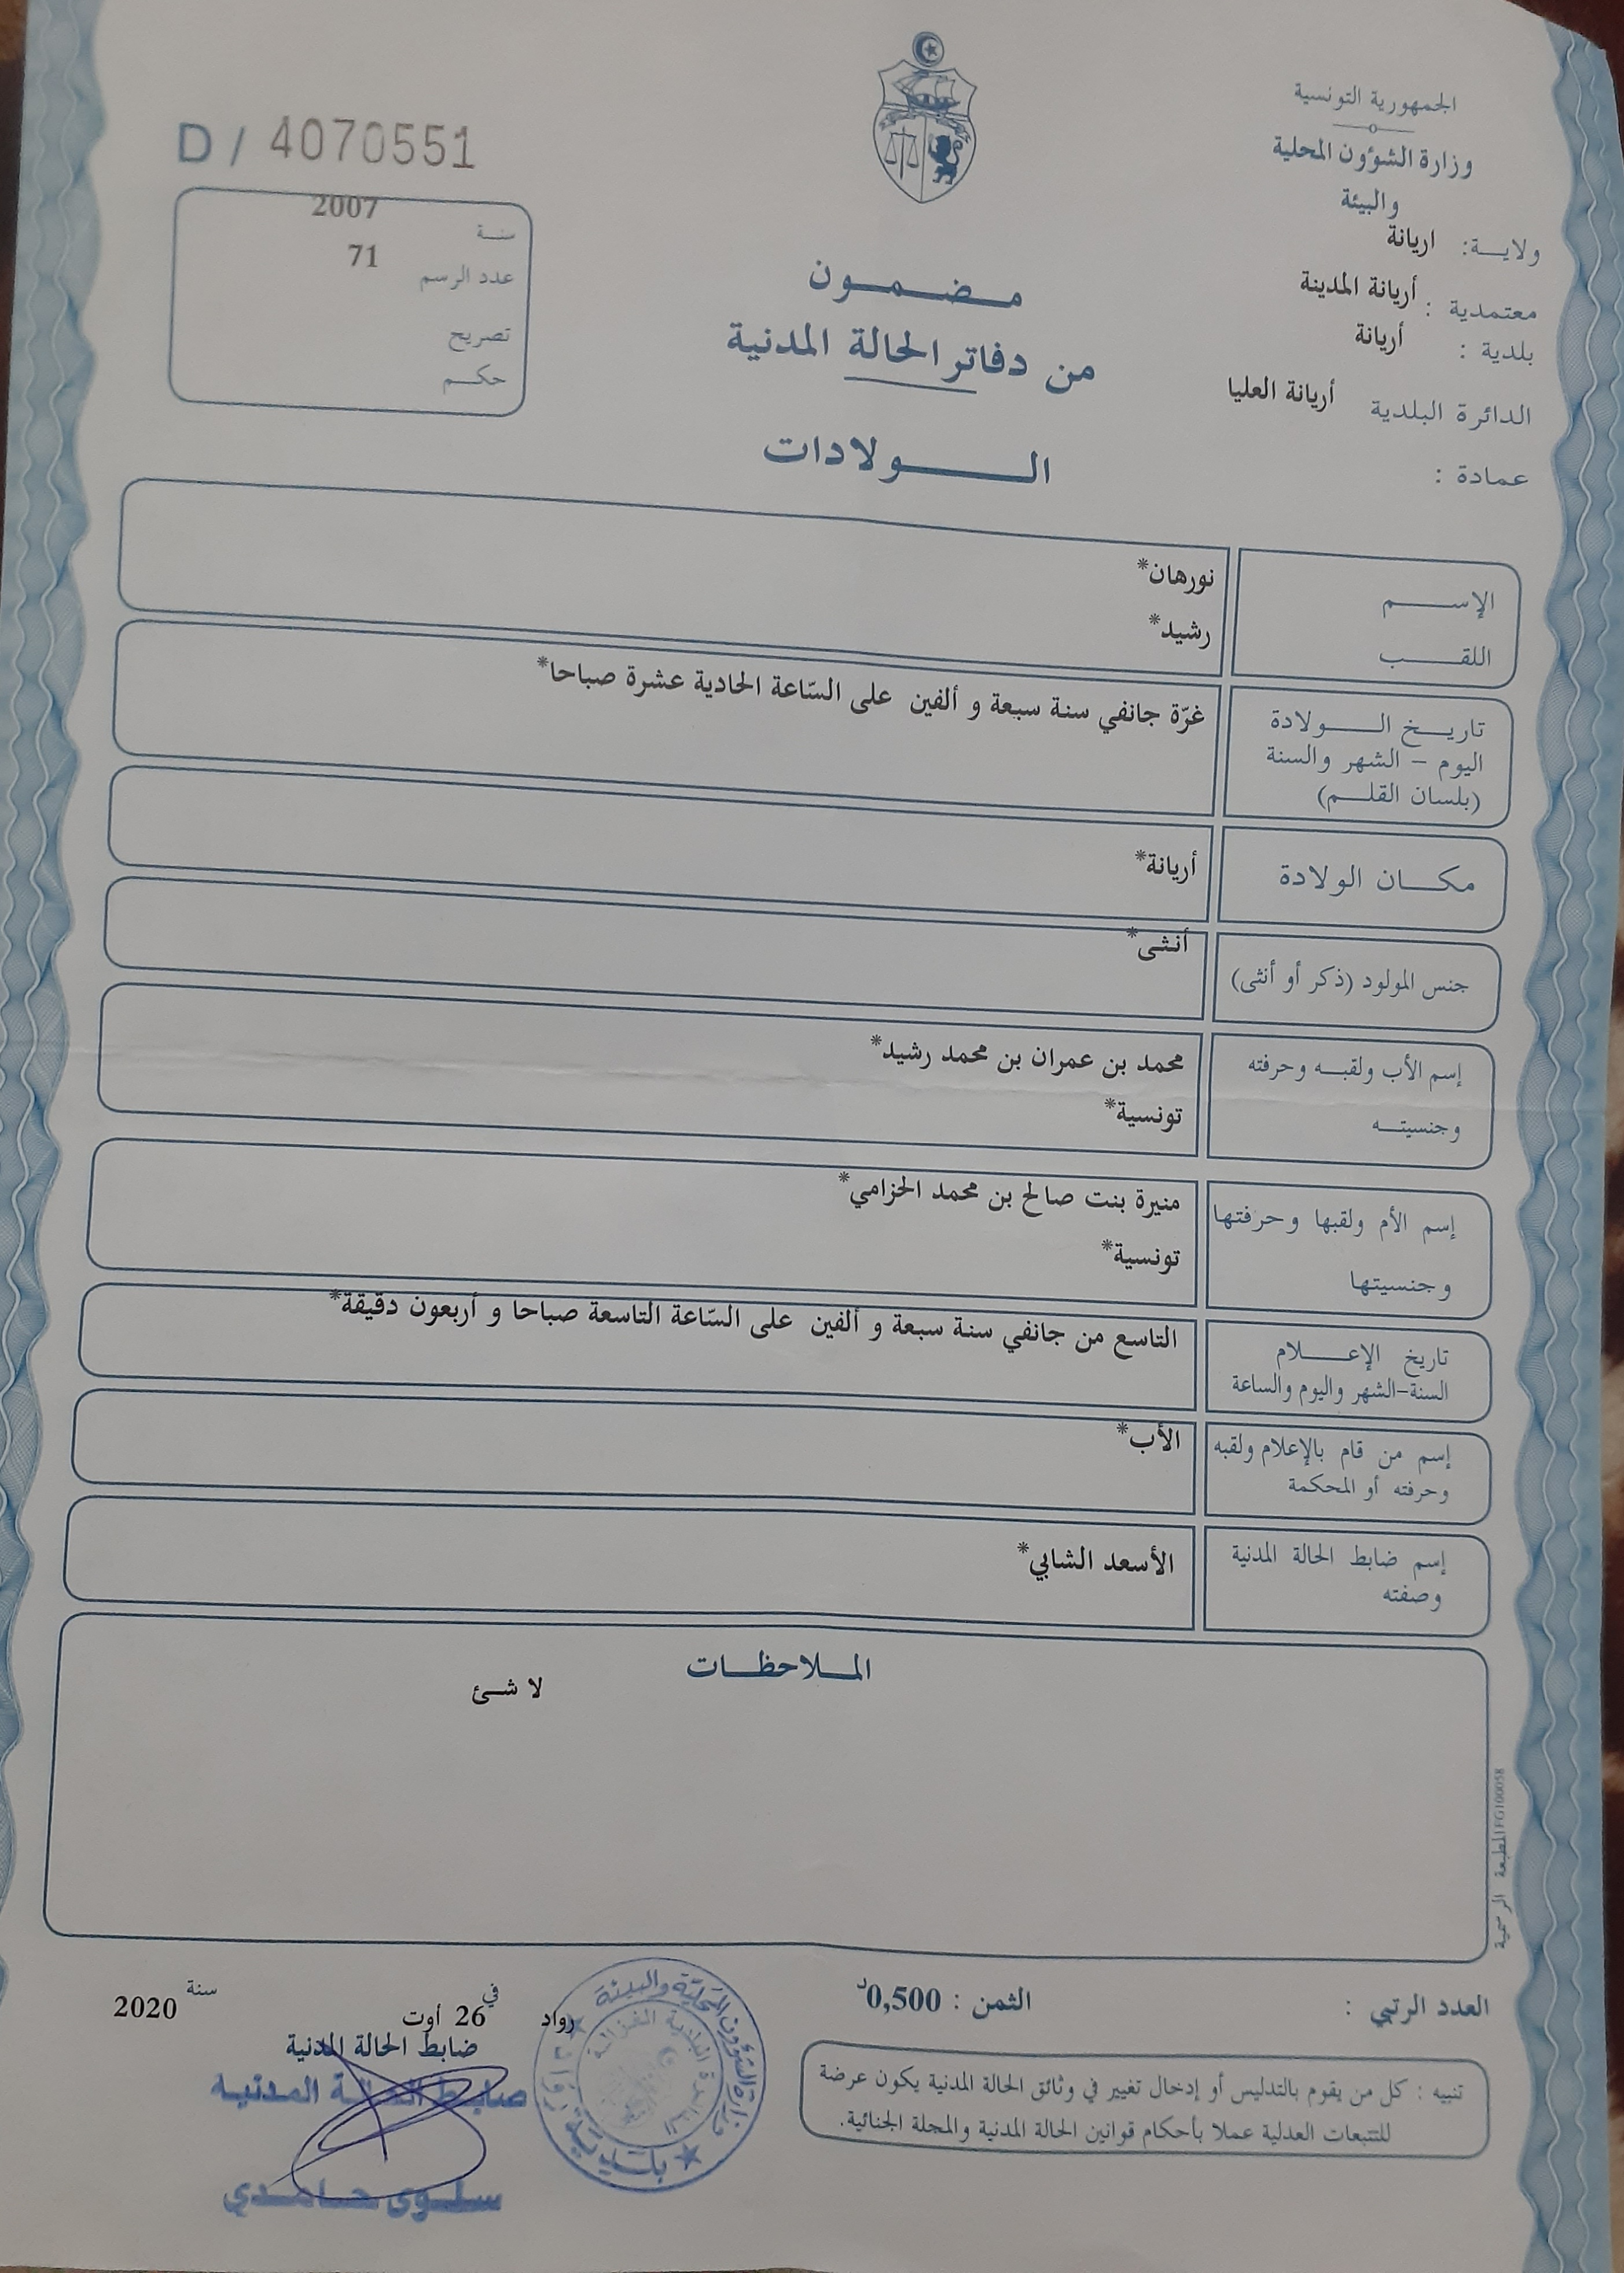 الجمهورية التونسية
وزارة الشؤون المحلية
والبيئة
ولايـة: اريانة
معتمدية : أريانة المدينة
بلدية : أريانة
الدائرة البلدية أريانة العليا
عمادة :
D / 4070551
سنة 2007
عدد الرسم 71
تصريح
حكم
مضمون
من دفاتر الحالة المدنية
الولادات
الإسم نورهان*
اللقب رشيد*
تاريخ الولادة
اليوم - الشهر والسنة
(بلسان القلم)
غرّة جانفي سنة سبعة و ألفين على السّاعة الحادية عشرة صباحا*
مكان الولادة أريانة*
جنس المولود (ذكر أو أنثى) أنثى*
إسم الأب ولقبه وحرفته محمد بن عمران بن محمد رشيد*
وجنسيته تونسية*
إسم الأم ولقبها وحرفتها منيرة بنت صالح بن محمد الحزامي*
وجنسيتها تونسية*
تاريخ الإعلام
السنة-الشهر واليوم والساعة
التاسع من جانفي سنة سبعة و ألفين على السّاعة التاسعة صباحا و أربعون دقيقة*
إسم من قام بالإعلام ولقبه
وحرفته أو المحكمة
الأب*
إسم ضابط الحالة المدنية
وصفته
الأسعد الشابي*
الملاحظات
لا شئ
المطبعة الرسمية FG100058
العدد الرتبي :
الثمن : 0,500د
رواد في 26 أوت سنة 2020
ضابط الحالة المدنية
ضابط الحالة المدنية
سلوى حامدي
وزارة الشؤون المحلية والبيئة
بلدية رواد
الدائرة البلدية الغزالة
تنبيه : كل من يقوم بالتدليس أو إدخال تغيير في وثائق الحالة المدنية يكون عرضة
للتتبعات العدلية عملا بأحكام قوانين الحالة المدنية والمجلة الجنائية.